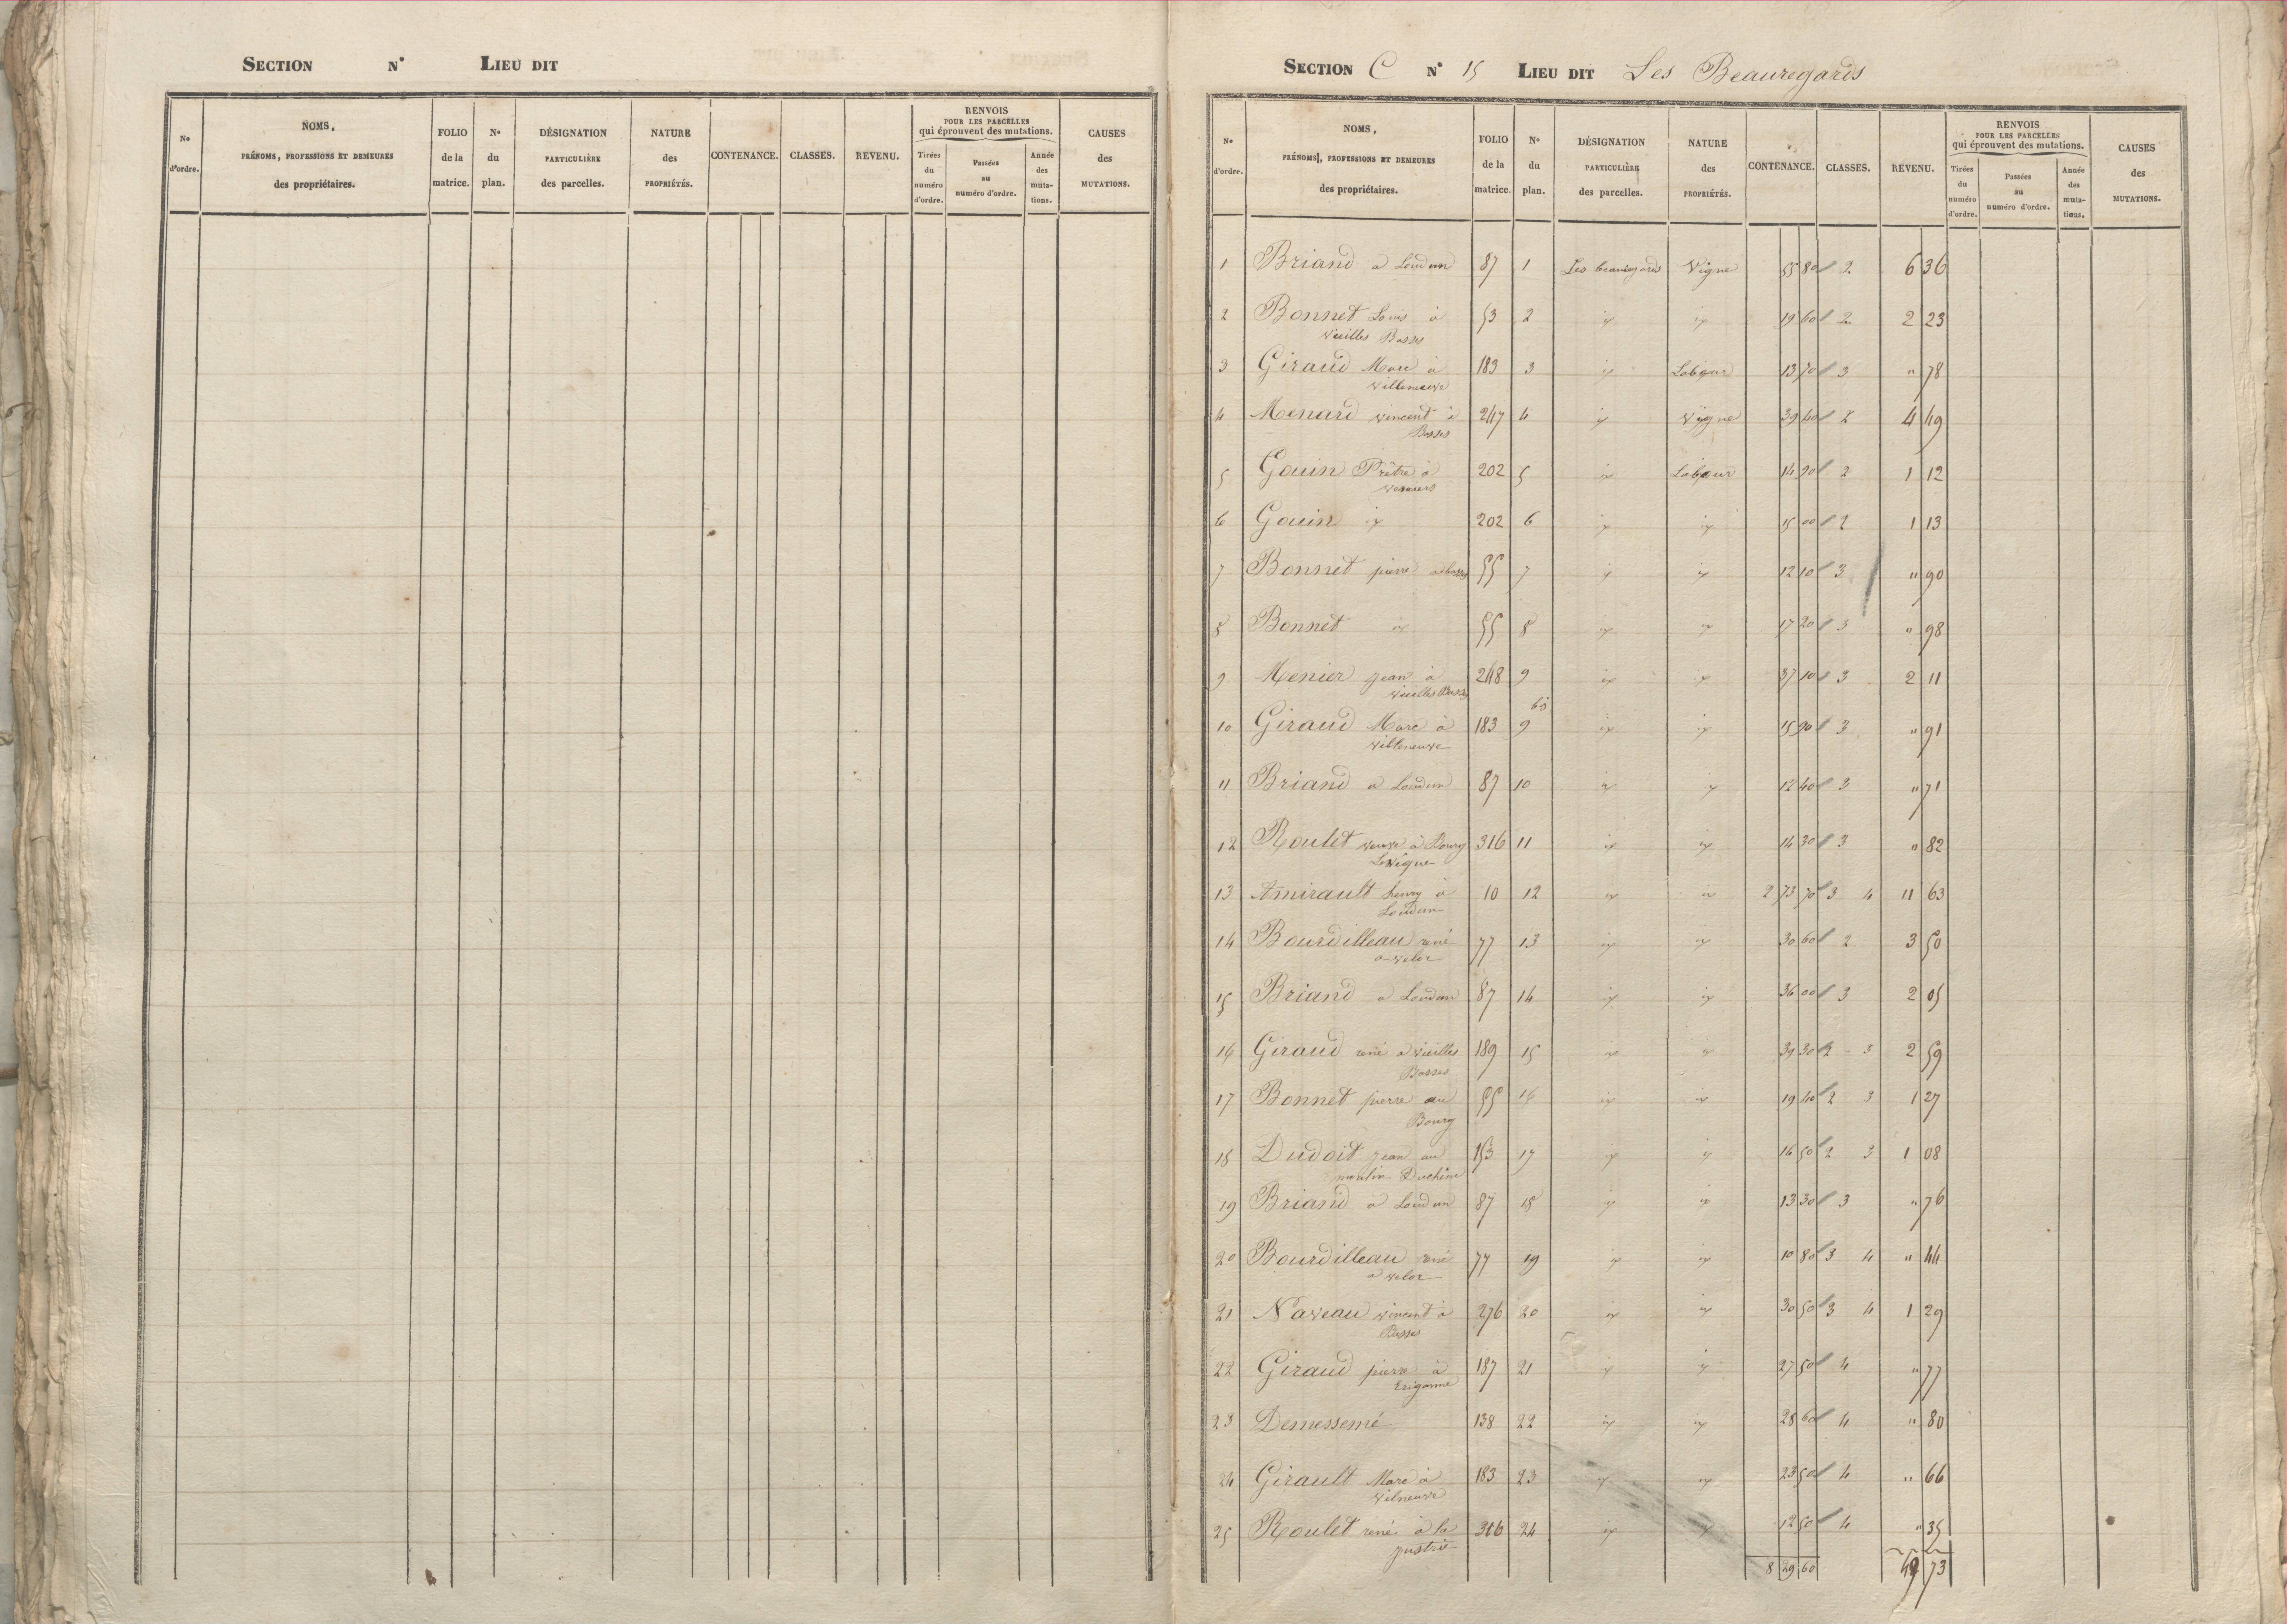 SECTION N° LIEU DIT
N° d'ordre. NOMS, PRÉNOMS, PROFESSIONS ET DEMEURES des propriétaires. FOLIO de la matrice. N° du plan. DÉSIGNATION PARTICULIÈRE des parcelles. NATURE des PROPRIÉTÉS. CONTENANCE. CLASSES. REVENU. RENVOIS POUR LES PARCELLES qui éprouvent des mutations. Tirées du numéro d'ordre. Passées au numéro d'ordre. Année des mutations. CAUSES des MUTATIONS.
SECTION C N° 15 LIEU DIT Les Beauregards
N° d'ordre. NOMS, PRÉNOMS, PROFESSIONS ET DEMEURES des propriétaires. FOLIO de la matrice. N° du plan. DÉSIGNATION PARTICULIÈRE des parcelles. NATURE des PROPRIÉTÉS. CONTENANCE. CLASSES. REVENU. RENVOIS POUR LES PARCELLES qui éprouvent des mutations. Tirées du numéro d'ordre. Passées au numéro d'ordre. Année des mutations. CAUSES des MUTATIONS.
1 Briand a Loudun 87 1 Les beauregards Vigne 55 80 2 6 36
2 Bonnet Louis à 53 2 id id 19 60 2 2 23
vieilles Bosses
3 Giraud Marc à 183 3 id Labour 13 70 3 " 78
villeneuve
4 Menard vincent à 247 4 id Vigne 39 40 2 4 49
Bosses
5 Gouin Prêtre à 202 5 id Labour 14 90 2 1 12
verniers
6 Gouin id 202 6 id id 15 00 2 1 13
7 Bonnet pierre a bosses 55 7 id id 12 10 3 " 90
8 Bonnet id 55 8 id id 17 20 3 " 98
9 Menier jean à 248 9 id id 37 10 3 2 11
vieilles Bosses
10 Giraud Marc à 183 9 bis id id 15 90 3 " 91
villeneuve
11 Briand a Loudun 87 10 id id 12 40 3 " 71
12 Roulet veuve à Bourg 316 11 id id 14 30 3 " 82
Levêque
13 Amirault henry à 10 12 id id 2 73 70 3 4 11 63
Loudun
14 Bourdilleau rené 77 13 id id 30 60 2 3 50
a velor
15 Briand a Loudun 87 14 id id 36 00 3 2 05
16 Giraud rené a vieilles 189 15 id id 39 30 2 3 2 59
Bosses
17 Bonnet pierre au 55 16 id id 19 40 2 3 1 27
Bourg
18 Dudoit jean au 153 17 id id 16 50 2 3 1 08
moulin Duchêne
19 Briand a Loudun 87 18 id id 13 30 3 " 76
20 Bourdilleau rené 77 19 id id 10 80 3 4 " 44
a velor
21 Naveau vincent a 276 20 id id 30 50 3 4 1 29
Bosses
22 Giraud pierre à 187 21 id id 27 50 4 " 77
Erigonne
23 Demessemé 138 22 id id 28 60 4 " 80
24 Girault Marc à 183 23 id id 23 50 4 " 66
vilneuve
25 Roulet rené à la 316 24 id id 12 50 4 " 35
justrie
8 49 60 49 73